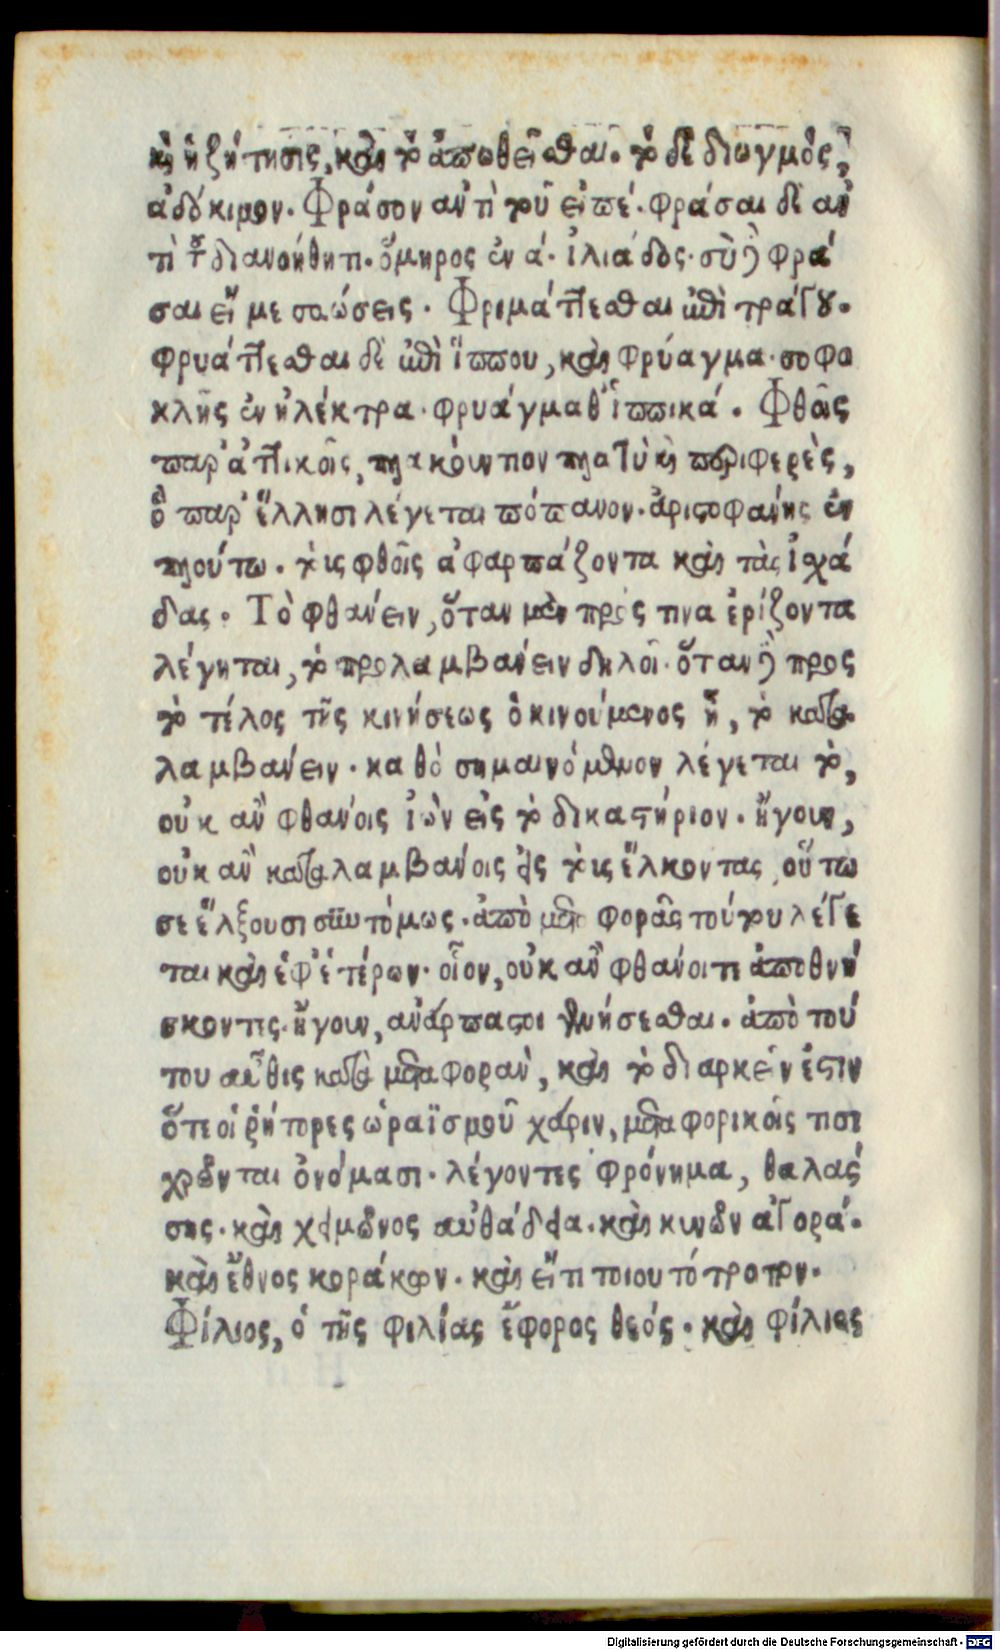 καὶ ἡ ζήτησις, καὶ τὸ ἀπωθεῖσθαι. τὸ δὲ διωγμὸς,
ἀδόκιμον. Φράσον ἀντὶ τοῦ εἰπέ. φράσαι δὲ ἀν
τὶ τοῦ διανοήθητι. ὅμηρος ἐν ά. ἰλιάδος. σὺ δὲ φρά
σαι εἴ με σαώσεις. Φριμάττεσθαι ἐπὶ τράγου.
φρυάττεσθαι δὲ ἐπὶ ἵππου, καὶ φρύαγμα. σοφο
κλῆς ἐν ἠλέκτρα. φρυάγμαθ' ἱππικά. Φθοῖς
παρ' ἀττικοῖς, πλακούντιον πλατὺ καὶ περιφερὲς,
ὃ παρ' ἕλλησι λέγεται πόπανον. ἀριστοφάνης ἐν
πλούτω. τοὺς φθοῖς ἀφαρπάζοντα καὶ τὰς ἰσχά
δας. Τὸ φθάνειν, ὅταν μὲν πρός τινα ἐρίζοντα
λέγηται, τὸ προλαμβάνειν δηλοῖ. ὅταν δὲ πρὸς
τὸ τέλος τῆς κινήσεως ὁ κινούμενος ᾖ, τὸ κατα
λαμβάνειν. καθὸ σημαινόμενον λέγεται τὸ,
οὐκ ἂν φθάνοις ἰὼν εἰς τὸ δικαστήριον. ἤγουν,
οὐκ ἂν καταλαμβάνοις εἰς τοὺς ἕλκοντας, οὕτω
σε ἕλξουσι συντόμως. ἀπὸ μεταφορᾶς τούτου λέγε
ται καὶ ἐφ' ἑτέρων. οἷον, οὐκ ἂν φθάνοιτε ἀποθνή
σκοντες. ἤγουν, ἀνάρπαστοι γενήσεσθαι. ἀπὸ τού
του αὖθις κατὰ μεταφορὰν, καὶ τὸ διαρκεῖν ἐστιν
ὅτι οἱ ῥήτορες ὡραϊσμοῦ χάριν, μεταφορικοῖς τισι
χρῶνται ὀνόμασι. λέγοντες φρόνημα, θαλάσ
σης. καὶ χειμῶνος αὐθάδεια. καὶ κυνῶν ἀγορά.
καὶ ἔθνος κοράκων. καὶ εἴ τι τοιουτότροπον.
Φίλιος, ὁ τῆς φιλίας ἔφορος θεός. καὶ φίλιος
Digitalisierung gefördert durch die Deutsche Forschungsgemeinschaft - DFG